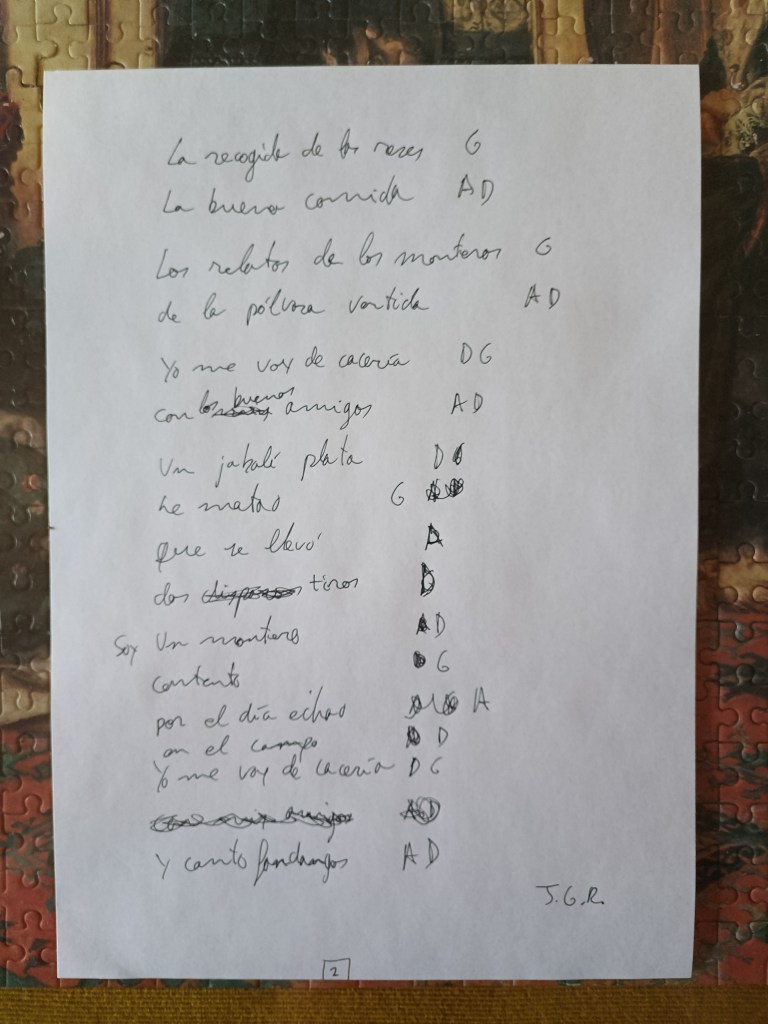 La recogida de las reses G
La buena comida A D
Los relatos de los monteros G
de la pólvora vertida A D
Yo me voy de cacería D G
con los buenos amigos A D
Un jabalí plata D G
he matao G
que se llevó A
dos tiros D
Soy Un montero A D
contento G
por el día echao A
en el campo D
Yo me voy de cacería D G
Y canto fandangos A D
J.G.R.
2